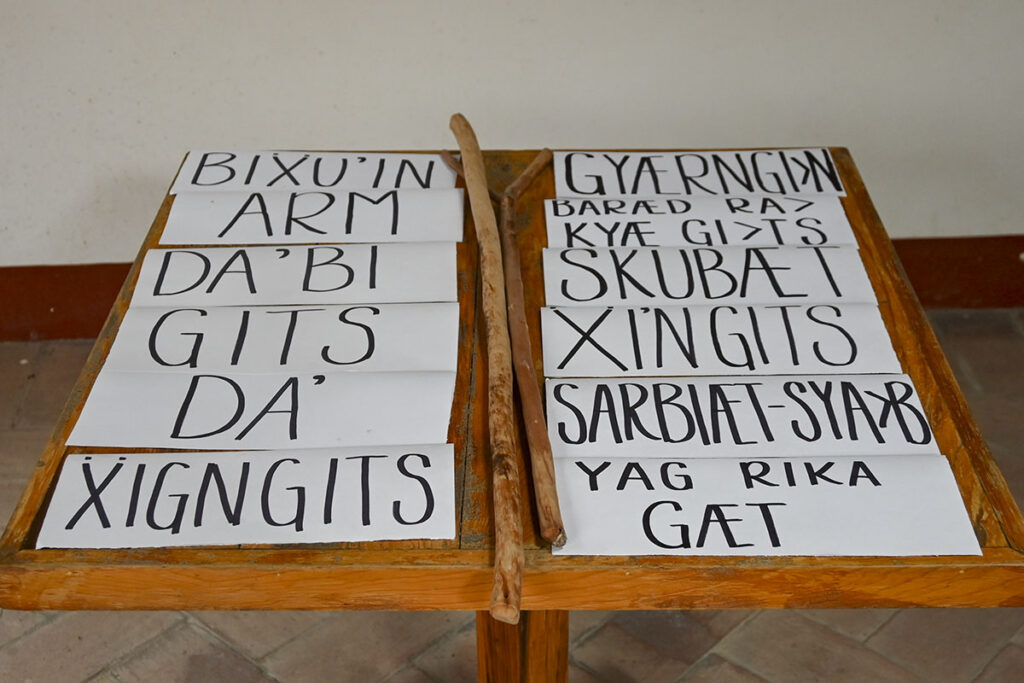 BIẌU'IN
ARM
DA'BI
GITS
DA'
ẌIGNGITS
GYÆRNGI>N
BARÆD RA>
KYÆ GI>TS
SKUBÆT
XI'NGITS
SARBIÆT-SYA>B
YAG RIKA
GÆT